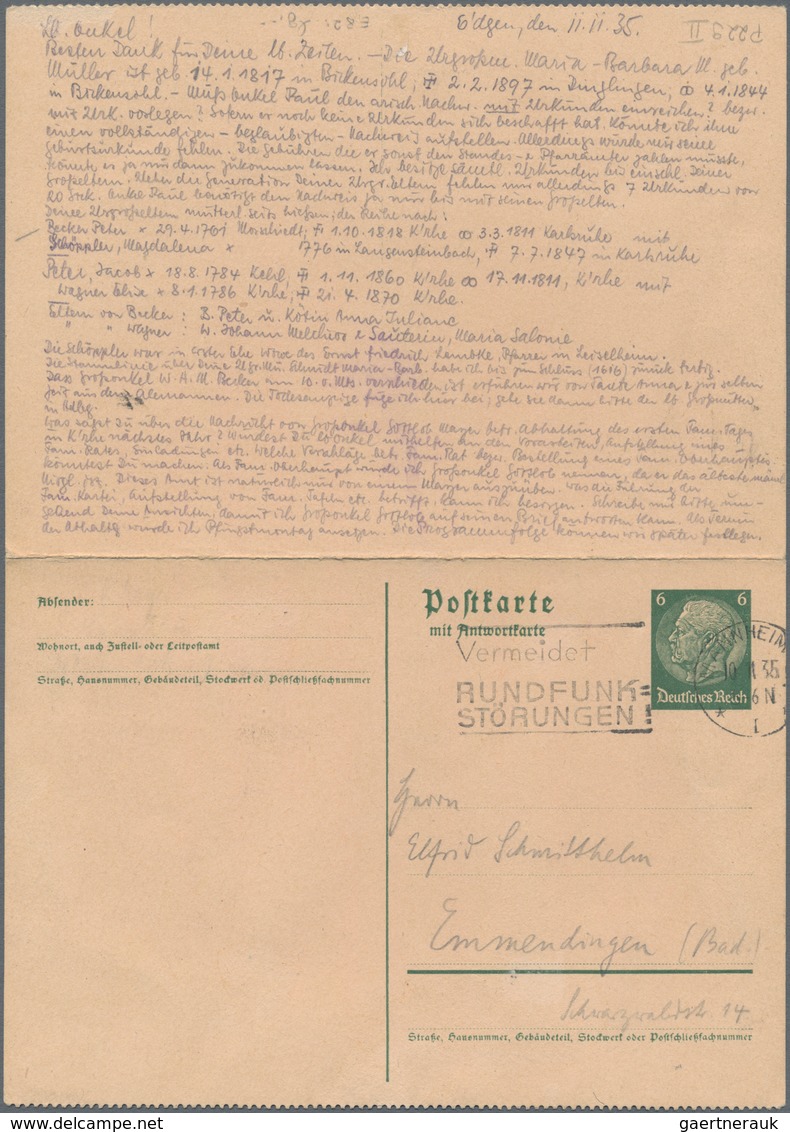 Lb. Onkel!
E'dgen, den 11.11.35.
P229 II
Besten Dank für Deine lb. Zeilen. – Die Urgroßm. Maria-Barbara M. geb.
Müller ist geb. 14.1.1817 in Bickensohl, ☩ 2.2.1897 in Dinglingen, ⚭ 4.1.1844
in Bickensohl. – Muß Onkel Paul den arisch. Nachw. mit Urkunden einreichen? bezw.
mit Urk. vorlegen? Sofern er noch keine Urkunden sich beschafft hat, könnte ich ihm
einen vollständigen – beglaubigten – Nachweis aufstellen. Allerdings würde nur seine
Geburtsurkunde fehlen. Die Gebühren die er sonst den Standes- & Pfarrämter zahlen müsste,
könnte er ja mir dann zukommen lassen. Ich besitze sämtl. Urkunden bis einschl. Deiner
Großeltern. Ueber die Generation Deiner Urgr.Eltern fehlen mir allerdings 7 Urkunden von
20 Stck. Onkel Paul benötigt den Nachweis ja nur bis mit seinen Großelten.
Deine Urgroßeltern mütterl. seits hießen, der Reihe nach:
Becker Peter × 29.4.1761 ☩ 1.10.1818 K'rhe ⚭ 3.3.1811 Karlsruhe mit
Schöppler, Magdalena × 1776 in Langensteinbach, ☩ 7.7.1847 in Karlsruhe
Peter, Jacob × 18.8.1784 Kehl, ☩ 1.11.1860 K'rhe ⚭ 17.11.1811, K'rhe mit
Wagner Elise × 8.1.1786 K'rhe, ☩ 21.4.1870 K'rhe.
Eltern von Becker: B. Peter u. Kötin Anna Juliane
" " Wagner: W. Johann Melchior & Sauterin, Maria Salome
Die Schöppler war in erster Ehe Witwe des Ernst Friedrich Lembke, Pfarrer in Leiselheim.
Die Stammlinie über Deine Urgr.Mu. Schmidt Maria-Barb. habe ich bis zum Schluss (1616) zurück fertig.
Dass Großonkel W.A.M. Becker am 10. v. Mts. verschieden ist erfuhren wir von Tante Anna & zur selben
Zeit aus dem Alemannen. Die Todesanzeige füge ich hier bei; gebe sie dann bitte den lb. Großmutter
in Hdbg.
Was sagst Du über die Nachricht von Großonkel Gottlob betr. Abhaltung des ersten Fam. Tages
in K'rhe nächstes Jahr? Würdest Du lb. Onkel mithelfen an den Vorarbeiten, Aufstellung eines
Fam. Rates, Einladungen etc. Welche Vorschläge betr. Fam. Rat bezw. Bestellung eines Fam. Oberhauptes
könntest Du machen. Als Fam. Oberhaupt würde ich Großonkel Gottlob nennen, da er das älteste männl.
Dieses Amt ist natürlich nur von einem auszuüben. Was die Führung der
Fam. Kartei, Aufstellung von Fam. Tafeln etc. betrifft, kann ich besorgen. Schreibe mir bitte um-
gehend Deine Ansichten, damit ich Großonkel Gottlob auf seinen Brief antworten kann. Als Termin
der Abhaltg würde ich Pfingstmontag ansagen. Die Programmfolge können wir später festlegen.
Absender:
Wohnort, auch Zustell- oder Leitpostamt
Straße, Hausnummer, Gebäudeteil, Stockwerk od. Postschließfachnummer
Postkarte
mit Antwortkarte
6 6
Deutsches Reich
Vermeidet
RUNDFUNK=
STÖRUNGEN!
35
6 N
Herrn
Elfrid Schmitthelm
Emmendingen (Bad.)
Schwarzwaldstr. 14
Straße, Hausnummer, Gebäudeteil, Stockwerk oder Postschließfachnummer
gaertnerauk @ delcampe.net